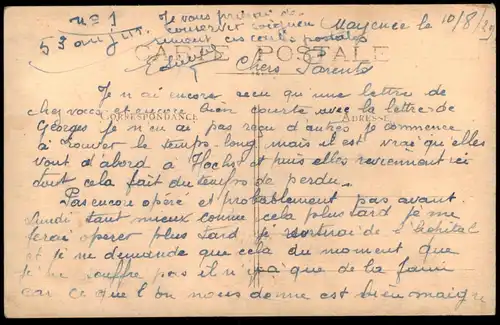 n° 1
Je vous prierai de
conserver soigneu
sement ces cartes postales
Mayence le 10/8/29
CARTE POSTALE
Edward
Chers Parents
Je n'ai encore recu qu'une lettre de
chez vous et encore bien courte avec la lettre de
CORRESPONDANCE
ADRESSE
Georges je n'en ai pas reçu d'autres je commence
à trouver le temps long mais il est vrai qu'elles
vont d'abord à Hochst et puis elles reviennent ici
tout cela fait du temps de perdu.
Pas encore opéré et probablement pas avant
Lundi tant mieux comme cela plus tard je me
ferai opérer plus tard je sortirai de l'hôpital
et je ne demande que cela du moment que
je ne souffre pas il n'y a que de la faim
car ce que l'on nous donne est bien maigre